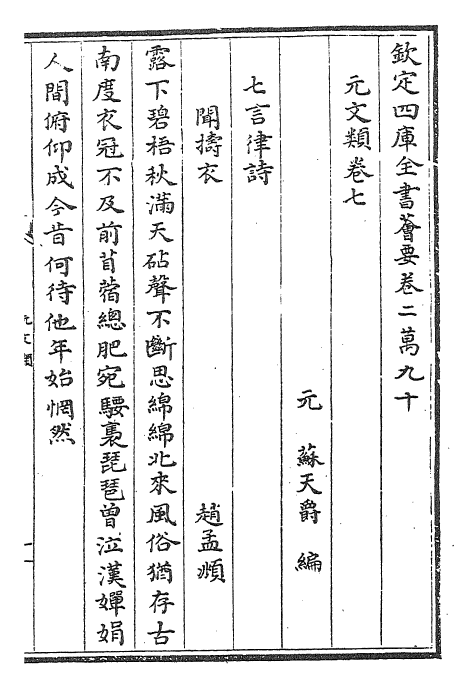 欽定四庫全書薈要卷二萬九十
元文類卷七
元 蘇天爵 編
七言律詩
聞擣衣 趙孟頫
露下碧梧秋滿天砧聲不斷思綿綿北來風俗猶存古
南度衣冠不及前苜蓿總肥宛騕褭琵琶曾泣漢嬋娟
人間俯仰成今昔何待他年始惘然